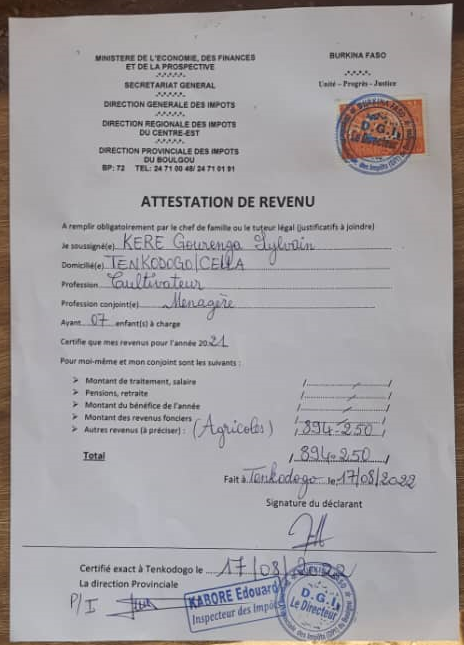 MINISTERE DE L'ECONOMIE, DES FINANCES
ET DE LA PROSPECTIVE
SECRETARIAT GENERAL
DIRECTION GENERALE DES IMPOTS
DIRECTION REGIONALE DES IMPOTS
DU CENTRE-EST
DIRECTION PROVINCIALE DES IMPOTS
DU BOULGOU
BP: 72 TEL: 24 71 00 48/ 24 71 01 91
BURKINA FASO
Unité – Progrès - Justice
BURKINA FASO
D.G.I.
Le Directeur
ATTESTATION DE REVENU
A remplir obligatoirement par le chef de famille ou le tuteur légal (justificatifs à joindre)
Je soussigné(e) KERE Gourenga Sylvain
Domicilié(e) TENKODOGO/CELLA
Profession Cultivateur
Profession conjoint(e) Menagère
Ayant 07 enfant(s) à charge
Certifie que mes revenus pour l'année 2021
Pour moi-même et mon conjoint sont les suivants :
➢ Montant de traitement, salaire /............/
➢ Pensions, retraite /............/
➢ Montant du bénéfice de l'année /............/
➢ Montant des revenus fonciers /............/
➢ Autres revenus (à préciser) : (Agricoles) /894-250/
Total /894-250/
Fait à Tenkodogo le 17/08/2022
Signature du déclarant
Certifié exact à Tenkodogo le 17/08/2022
La direction Provinciale
P/I
KABORE Edouard
Inspecteur des Impôts
D.G.I.
Le Directeur